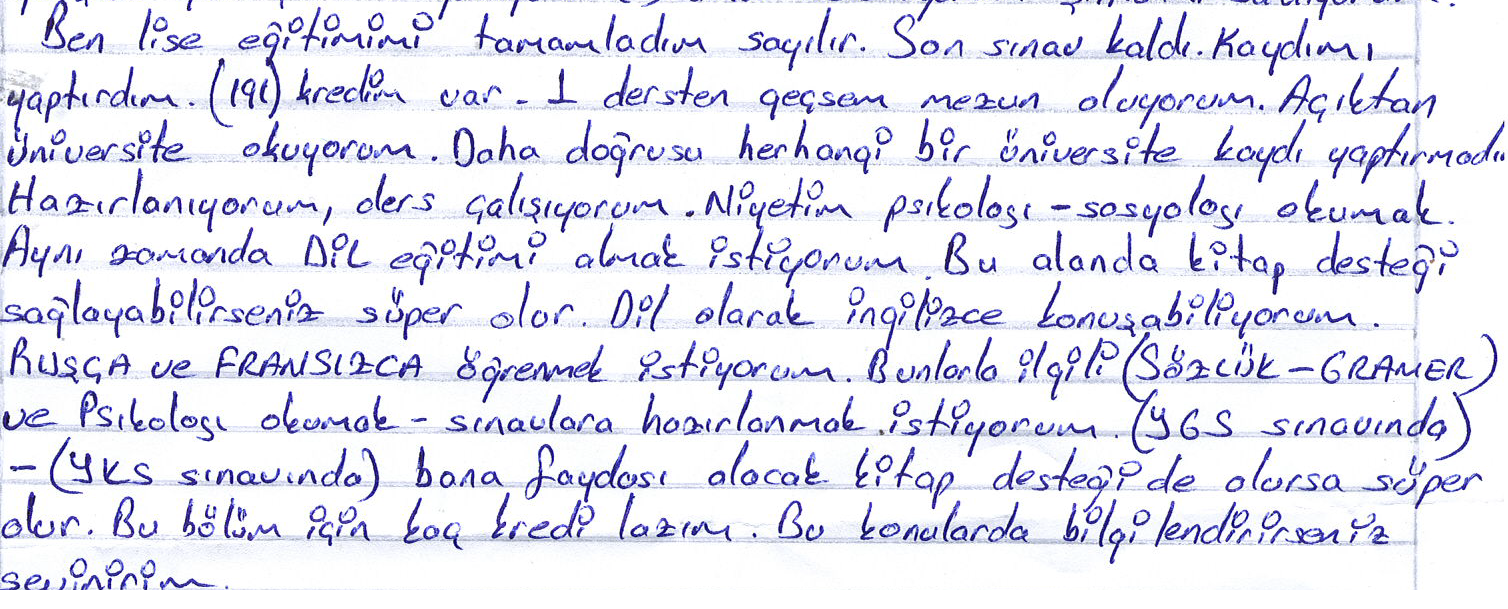 Ben lise eğitimimi tamamladım sayılır. Son sınav kaldı. Kaydımı
yaptırdım. (191) kredim var - 1 dersten geçsem mezun oluyorum. Açıktan
üniversite okuyorum. Daha doğrusu herhangi bir üniversite kaydı yaptırmadı
Hazırlanıyorum, ders çalışıyorum. Niyetim psikologı - sosyologı okumak.
Aynı zamanda DİL eğitimi almak istiyorum. Bu alanda kitap desteği
sağlayabilirseniz süper olur. Dil olarak ingilizce konuşabiliyorum.
RUSÇA ve FRANSIZCA öğrenmek istiyorum. Bunlarla ilgili (SÖZCÜK - GRAMER)
ve Psikologı okumak - sınavlara hazırlanmak istiyorum. (YGS sınavında)
- (YKS sınavında) bana faydası olacak kitap desteği de olursa süper
olur. Bu bölüm için kaç kredi lazım. Bu konularda bilgilendirirseniz
sevinirim.